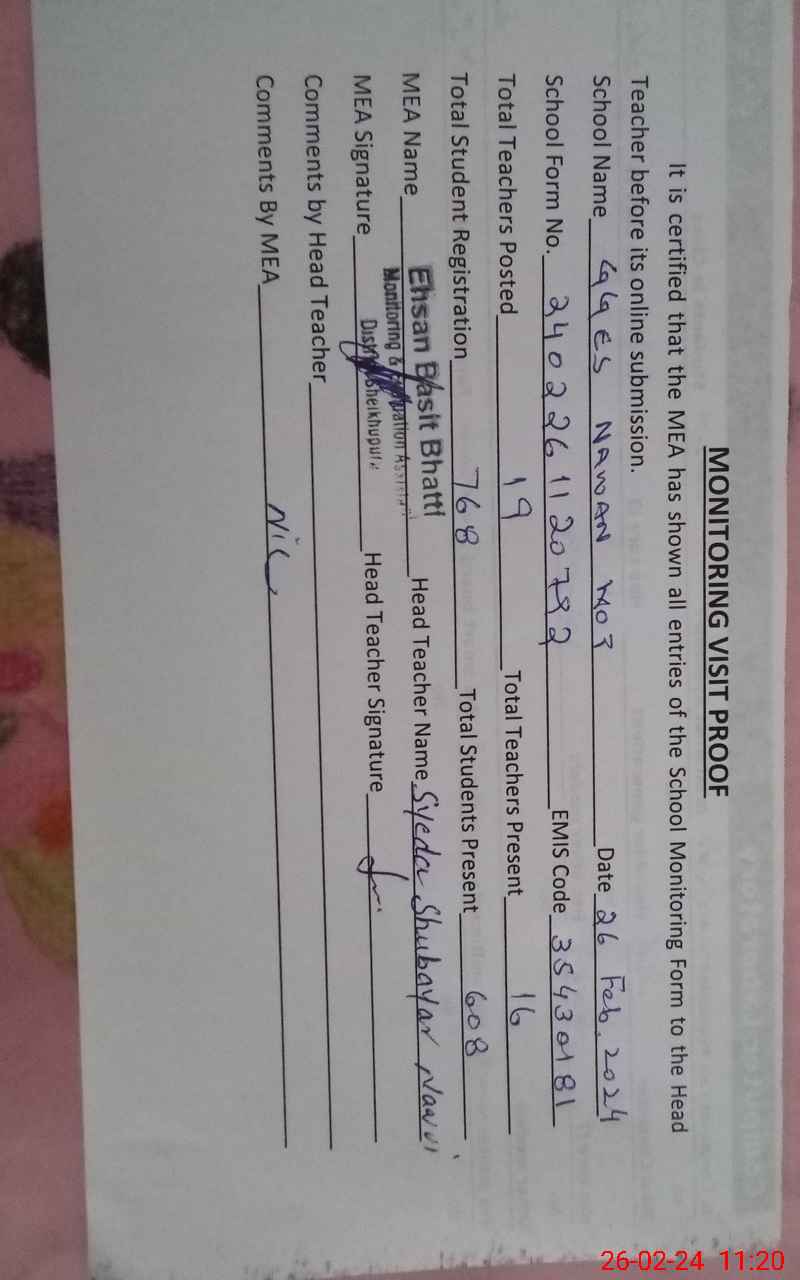 MONITORING VISIT PROOF
It is certified that the MEA has shown all entries of the School Monitoring Form to the Head
Teacher before its online submission.
School Name GGES NAWAN MOR Date 26 Feb. 2024
School Form No. 2402261120782 EMIS Code 35430181
Total Teachers Posted 19 Total Teachers Present 16
Total Student Registration 768 Total Students Present 608
MEA Name Ehsan Basit Bhatti Head Teacher Name Syeda
Monitoring & Evaluation Assistant
MEA Signature Distt. Sheikhupura Head Teacher Signature
Comments by Head Teacher
Comments By MEA Nil
26-02-24 11:20